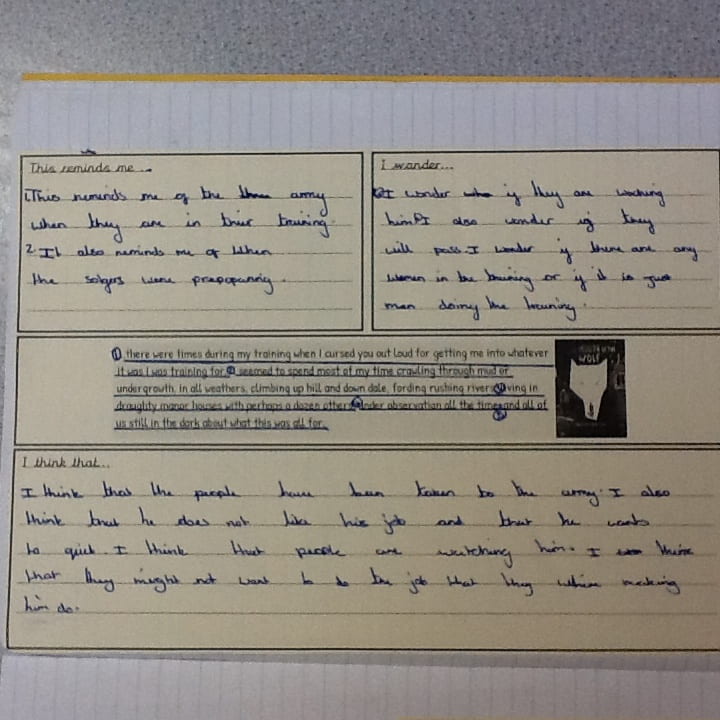 This reminds me ...
1. This reminds me of the army
when they are in their training.
2. It also reminds me of when
the solgers were prepopannig.
I wonder...
I wonder if they are waching
him. I also wonder if they
will pass. I wonder if there are any
women in the training or if it is just
man doing the trauning.
there were times during my training when I cursed you out loud for getting me into whatever
it was I was training for. seemed to spend most of my time crawling through mud or
undergrowth, in all weathers, climbing up hill and down dale, fording rushing rivers, ving in
draughty manor houses with perhaps a dozen others, nder observation all the time, and all of
us still in the dark about what this was all for.
WOLF
I think that...
I think that the people have been taken to the army. I also
think that he does not like his job and that he wants
to quick. I think that people are watching him. I think
that they might not want to do the job that they where making
him do.